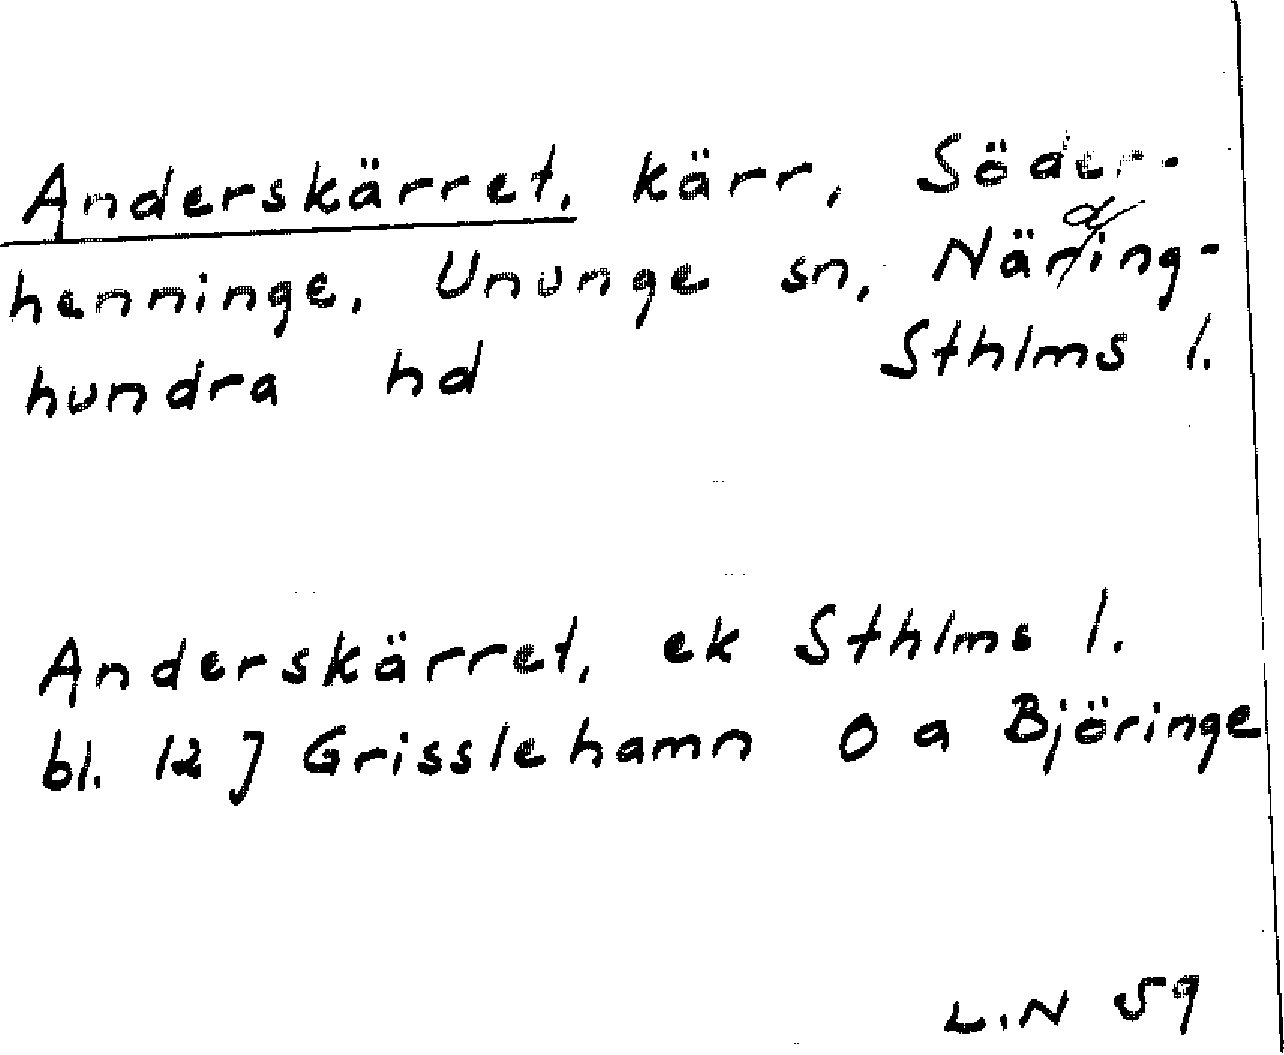 Anderskärret, kärr, Söder-
henninge, Ununge sn, Näråding-
hundra hd Sthlms l.
Anderskärret, ek Sthlms l.
bl. 12 J Grisslehamn O a Björinge
L.N 59